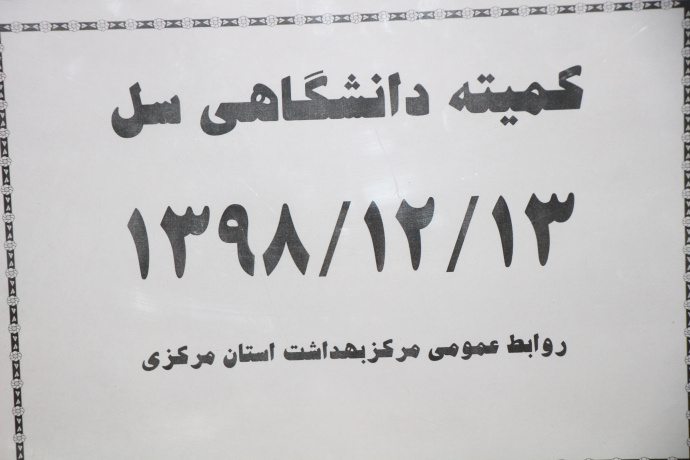 کمیته دانشگاهی سل
۱۳۹۸/۱۲/۱۳
روابط عمومی مرکزبهداشت استان مرکزی